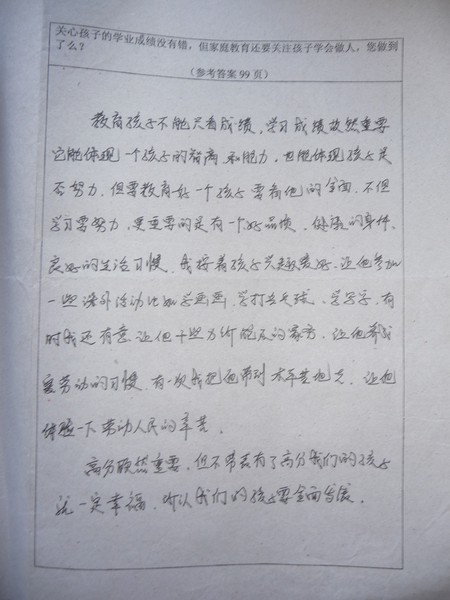 关心孩子的学业成绩没有错，但家庭教育还要关注孩子学会做人，您做到
了么？
（参考答案 99 页）
教育孩子不能只看成绩，学习成绩故然重要
它能体现一个孩子的智商和能力，也能体现孩子是
否努力，但要教育好一个孩子要看他的全面，不但
学习要努力，更重要的是有一个好品质、健康的身体、
良好的生活习惯，我按着孩子兴趣爱好，让他参加
一些课外活动比如学画画，学打乒乓球，学写字，有
时我还有意让他干些力所能及的家务，让他养成
爱劳动的习惯，有一次我把他带到 地里，让他
体验一下劳动人民的辛苦。
高分固然重要，但不等于有了高分我们的孩子
就一定幸福，所以我们的孩子要全面发展。